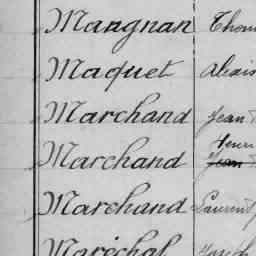 Mangnan Thom
Maquet Alexis
Marchand Jean
Henri
Marchand Jean
Marchand Laurent
Maréchal Joseph